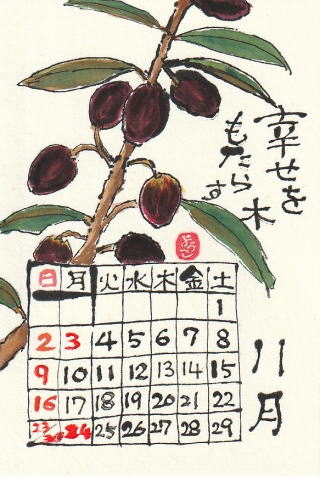 幸せを
もたらす
木
日 月 火 水 木 金 土
1
2 3 4 5 6 7 8
9 10 11 12 13 14 15
16 17 18 19 20 21 22
23/30 24 25 26 27 28 29
十一月